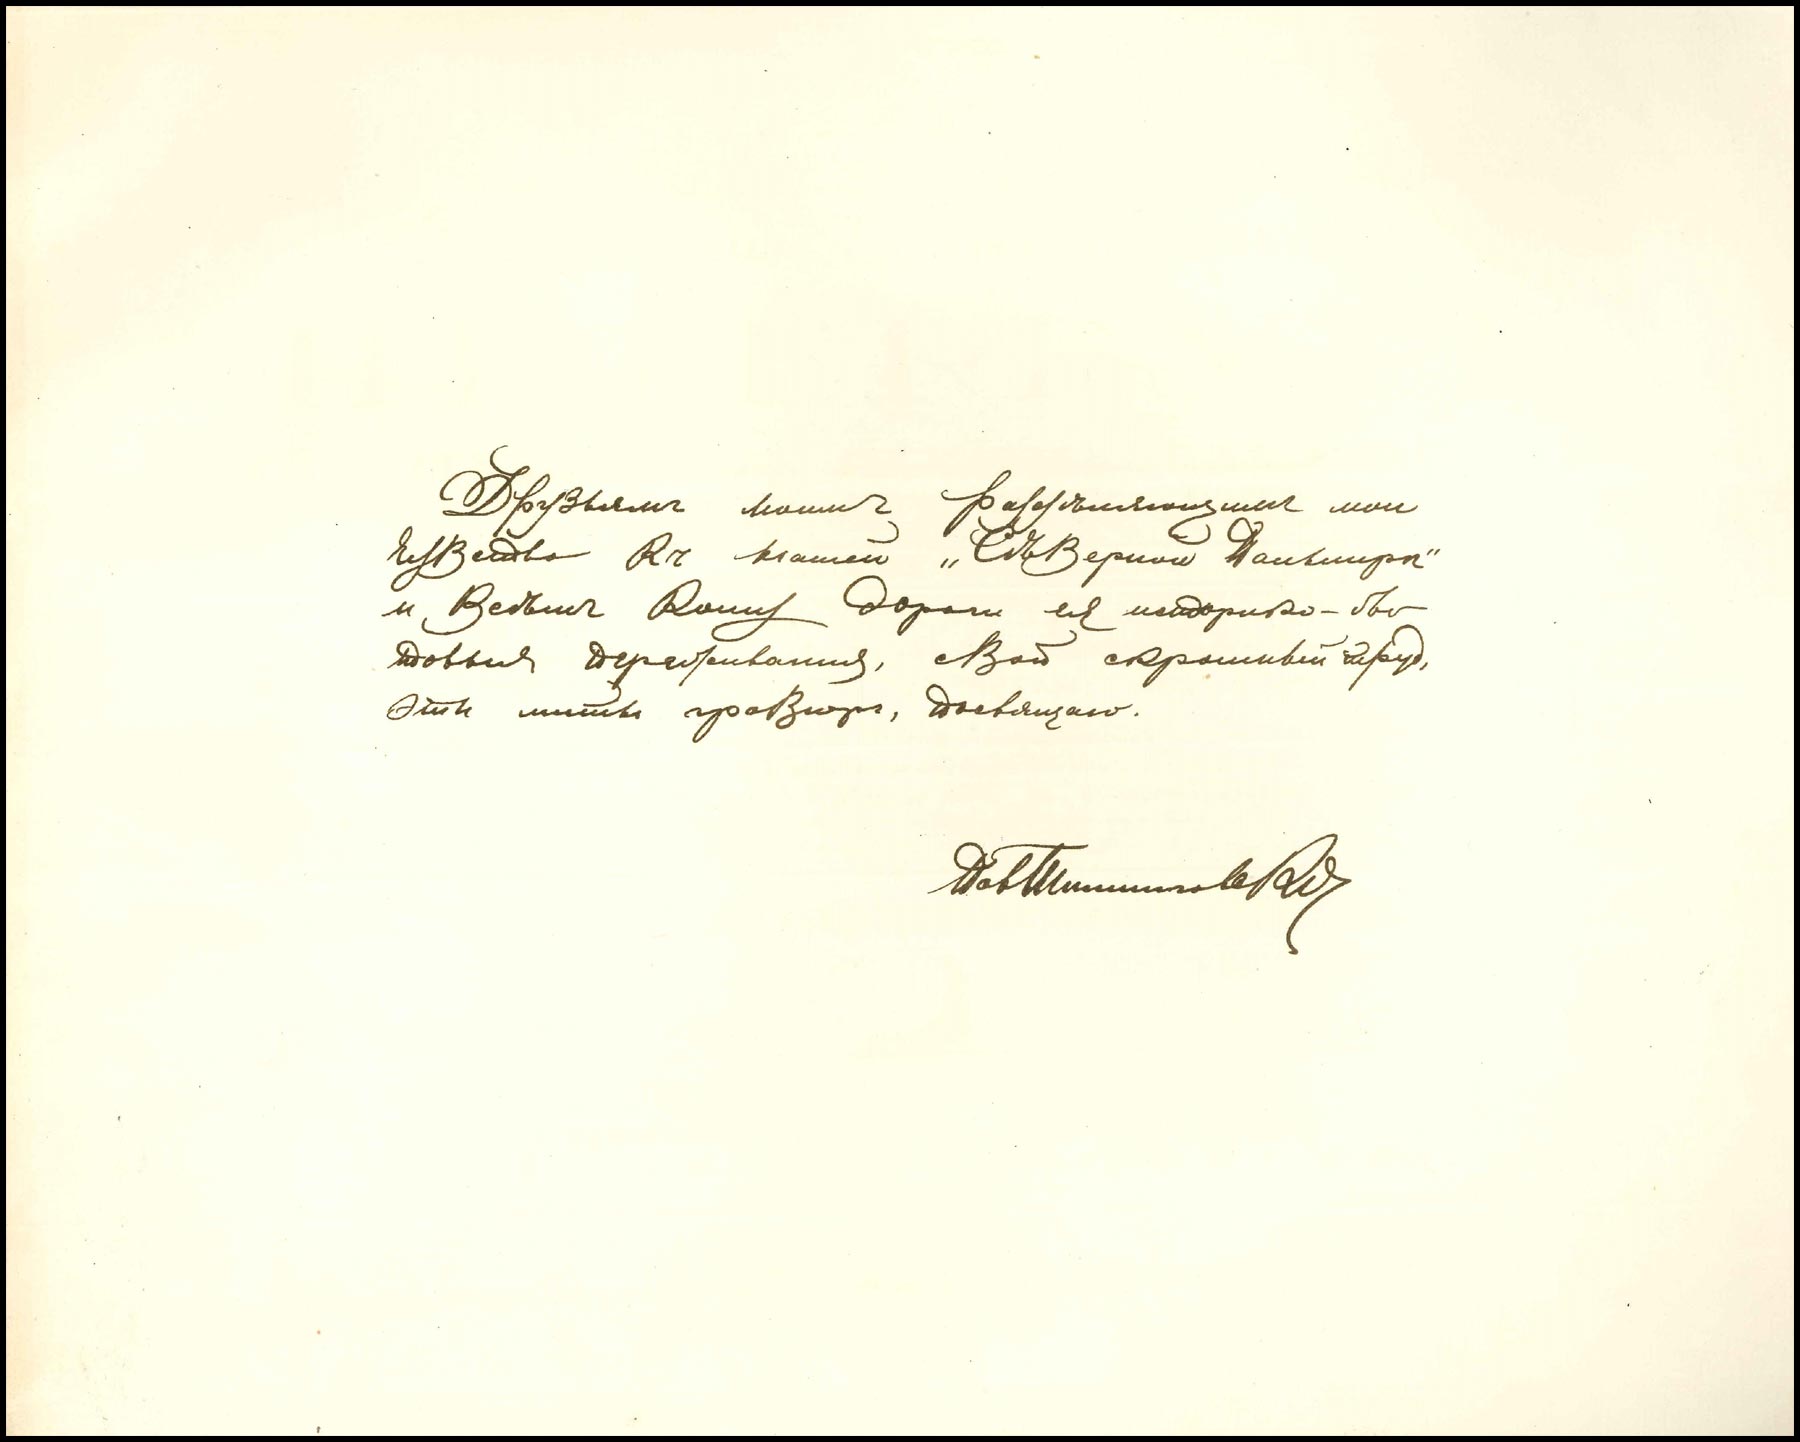 Друзьямъ моимъ раздѣляющимъ мои
чувства къ нашей „Сѣверной Пальмирѣ"
и всѣмъ кому дороги ея историко-бы-
товыя переживанія, свой скромный трудъ,
эти листы гравюръ, посвящаю.